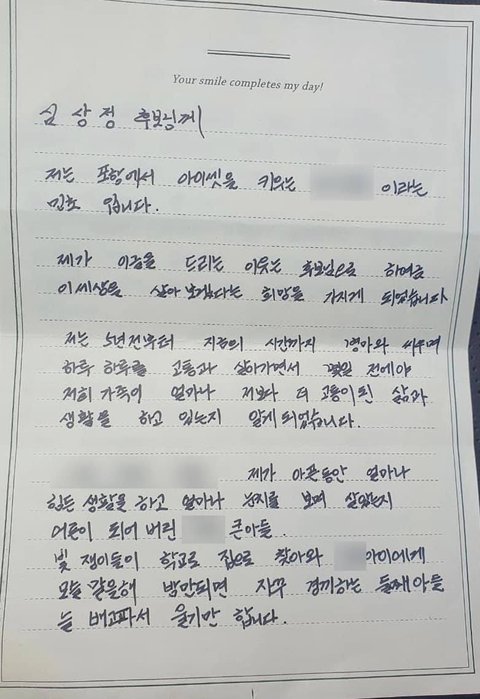 Your smile completes my day!
심상정 후보님께
저는 포항에서 아이셋을 키우는 이라는
입니다.
제가 이글을 드리는 이유는 후보님으로 하여금
이세상을 살아 보겠다는 희망을 가지게 되었습니다
저는 5년전부터 지금의 시간까지 병마와 싸우며
하루 하루를 고통과 살아가면서 몇일 전에야
저희 가족이 얼마나 저보다 더 고통이 된 삶과
생활을 하고 있는지 알게 되었습니다.
제가 아픈동안 얼마나
힘든 생활을 하고 얼마나 눈치를 보며 살았는지
어른이 되어 버린 큰아들.
빚 쟁이들이 학교로 집으로 찾아와 아이에게
밤만되면 자꾸 경기하는 둘째아들
늘 배고파서 울기만 합니다.